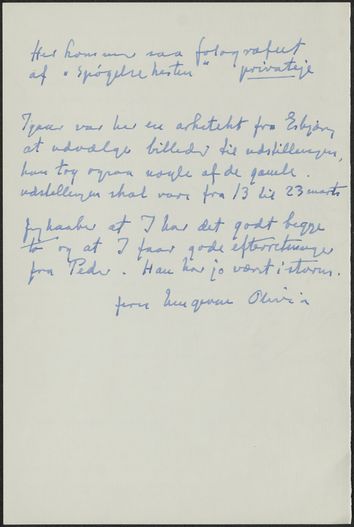 Her kommer saa fotografiet
af "Spøgelse hesten" privateje
Igaar var her en arkitekt fra Esbjerg
at udvælge billeder til udstillingen,
han tog ogsaa nogle af de gamle.
udstillingen skal vare fra 13 til 23 marts
jeg haaber at I har det godt begge
to og at I faar gode efterretninger
fra Peder. Han har jo været i storm.
Olivia